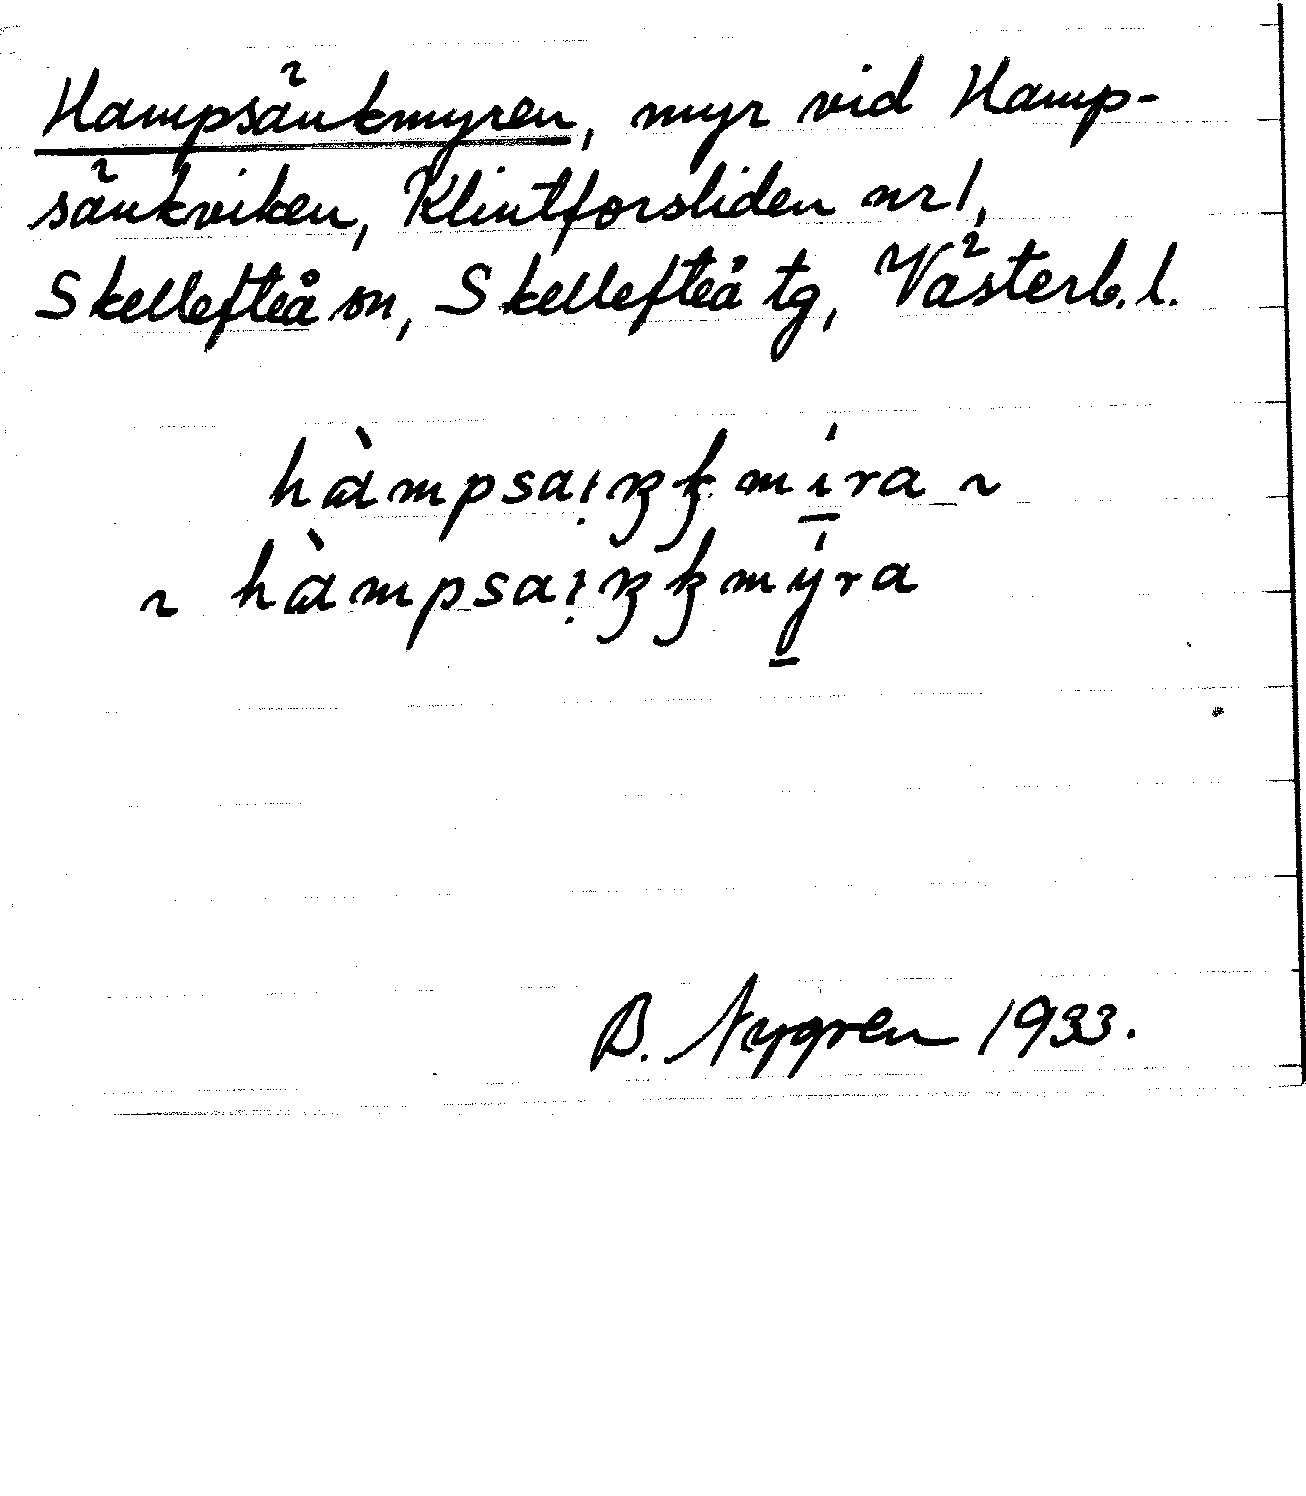 Hampsänkmyren, myr vid Hamp-
sänkviken, Klintforsliden nr 1,
Skellefteå sn, Skellefteå tg, Västerb. l.
B. Nygren 1933.